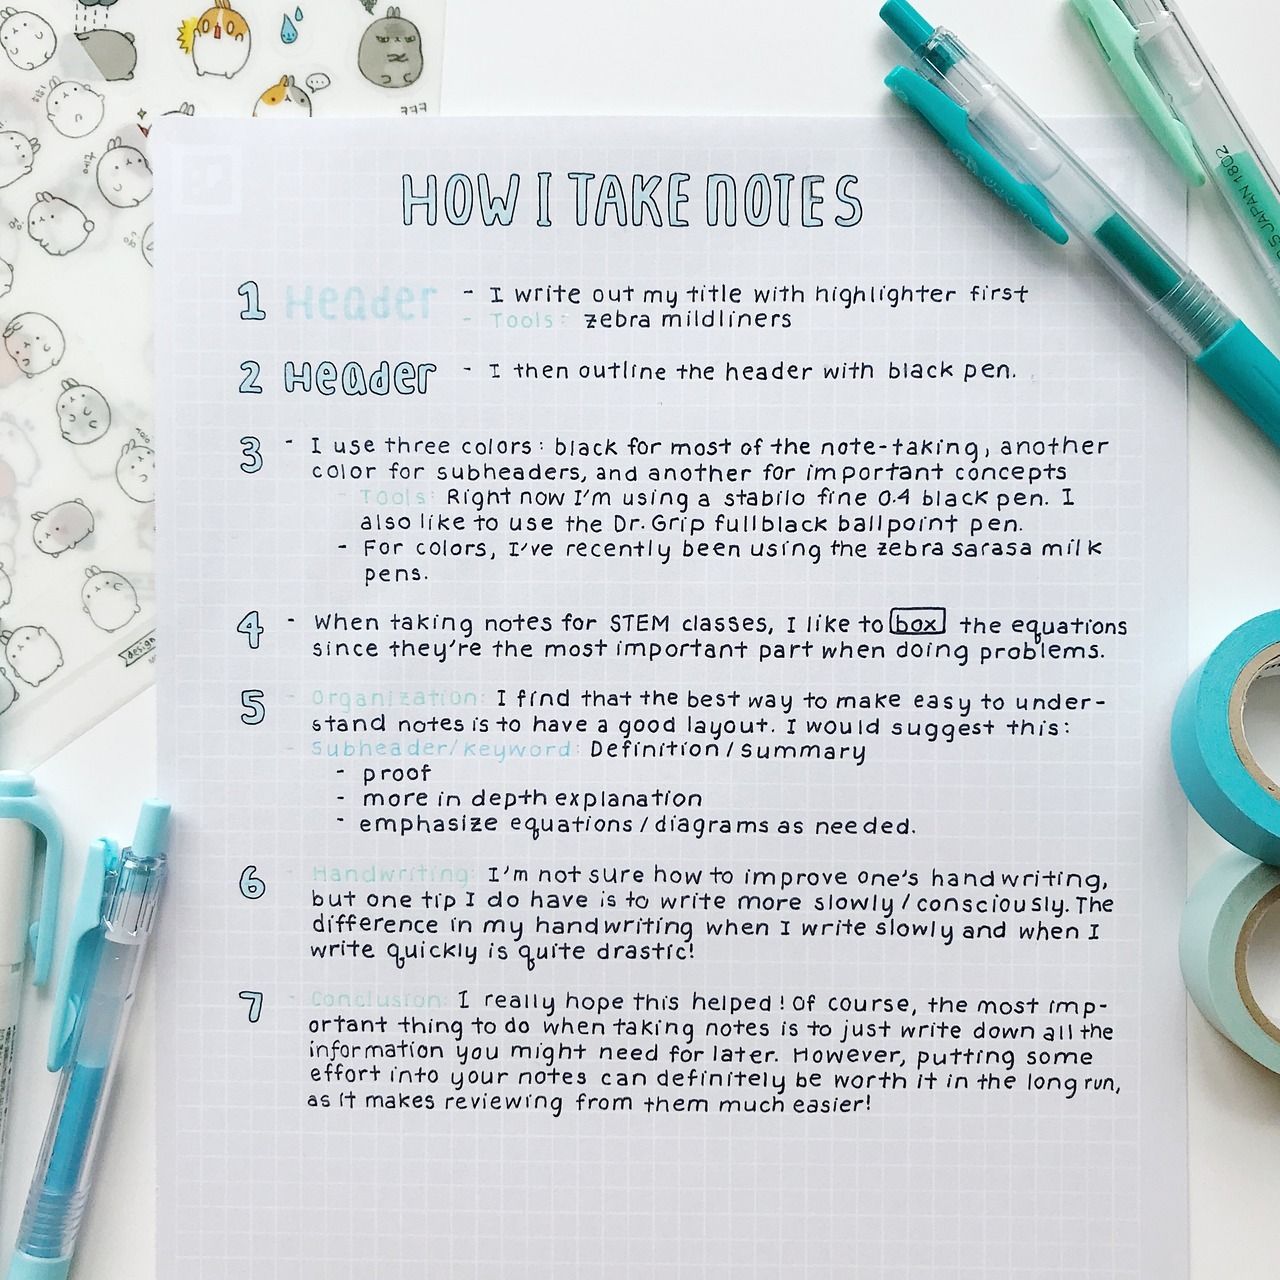 HOW I TAKE NOTES
1 Header - I write out my title with highlighter first
- Tools: zebra mildliners
2 Header - I then outline the header with black pen.
3 - I use three colors: black for most of the note-taking, another
color for subheaders, and another for important concepts
- Tools: Right now I'm using a stabilo fine 0.4 black pen. I
also like to use the Dr. Grip fullblack ballpoint pen.
- For colors, I've recently been using the zebra sarasa milk
pens.
4 - When taking notes for STEM classes, I like to box the equations
since they're the most important part when doing problems.
5 - Organization: I find that the best way to make easy to under-
stand notes is to have a good layout. I would suggest this:
- Subheader/Keyword: Definition/summary
- proof
- more in depth explanation
- emphasize equations/diagrams as needed.
6 - Handwriting: I'm not sure how to improve one's handwriting,
but one tip I do have is to write more slowly/consciously. The
difference in my handwriting when I write slowly and when I
write quickly is quite drastic!
7 - Conclusion: I really hope this helped! Of course, the most imp-
ortant thing to do when taking notes is to just write down all the
information you might need for later. However, putting some
effort into your notes can definitely be worth it in the long run,
as it makes reviewing from them much easier!
JAPAN 1802
design